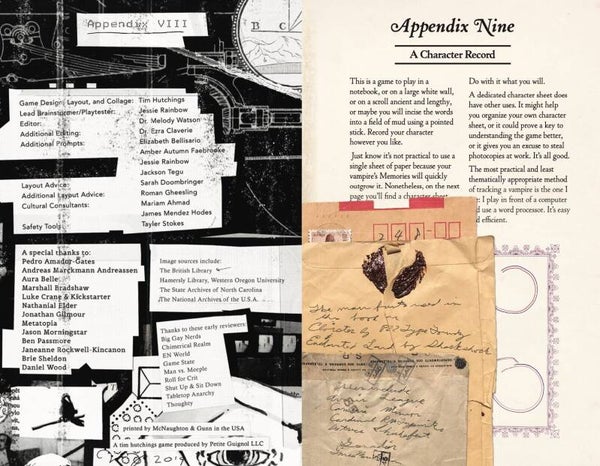 Appendix VIII
Game Design, Layout, and Collage: Tim Hutchings
Lead Brainstormer/Playtester: Jessie Rainbow
Editor: Dr. Melody Watson
Additional Editing: Dr. Ezra Claverie
Additional Prompts: Elizabeth Bellisario
Amber Autumn Faebrooke
Jessie Rainbow
Jackson Tegu
Layout Advice: Sarah Doombringer
Additional Layout Advice: Roman Gheesling
Cultural Consultants: Mariam Ahmad
James Mendez Hodes
Safety Tools: Tayler Stokes
A special thanks to:
Pedro Amador-Gates
Andreas Marckmann Andreassen
Aura Belle
Marshall Bradshaw
Luke Crane & Kickstarter
Nathanial Elder
Jonathan Gilmour
Metatopia
Jason Morningstar
Ben Passmore
Janeanne Rockwell-Kincanon
Brie Sheldon
Daniel Wood
Image sources include:
The British Library
Hamersly Library, Western Oregon University
The State Archives of North Carolina
The National Archives of the U.S.A.
Thanks to these early reviewers:
Big Gay Nerds
Chimerical Realm
EN World
Game State
Man vs. Meeple
Roll for Crit
Shut Up & Sit Down
Tabletop Anarchy
Thoughty
printed by McNaughton & Gunn in the USA
A tim hutchings game produced by Petite Guignol LLC
B C
Appendix Nine
A Character Record
This is a game to play in a
notebook, or on a large white wall,
or on a scroll ancient and lengthy,
or maybe you will incise the words
into a field of mud using a pointed
stick. Record your character
however you like.
Just know it's not practical to use a
single sheet of paper because your
vampire's Memories will quickly
outgrow it. Nonetheless, on the next
page you'll find a character sheet.
Do with it what you will.
A dedicated character sheet does
have other uses. It might help
you organize your own character
sheet, or it could prove a key to
understanding the game better,
or it gives you an excuse to steal
photocopies at work. It's all good.
The most practical and least
thematically appropriate method
of tracking a vampire is the one I
I play in front of a computer
use a word processor. It's easy
efficient.
The main fonts used in